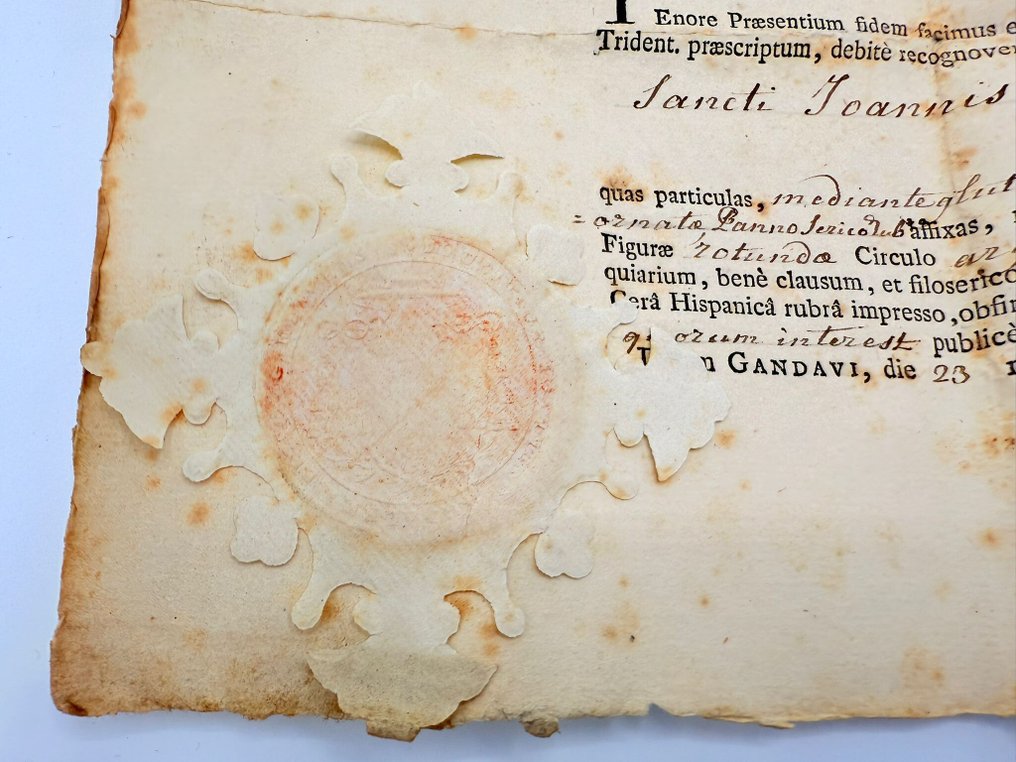 TEnore Præsentium fidem facimus
Trident. præscriptum, debitè recognove
Sancti Joannis
quas particulas, mediante glut
=ornatæ Panno Serico rub affixas,
Figuræ rotundæ Circulo ar
quiarium, benè clausum, et filo seric
Cerâ Hispanicâ rubrâ impresso, obfir
quorum interest publicè
GANDAVI, die 23